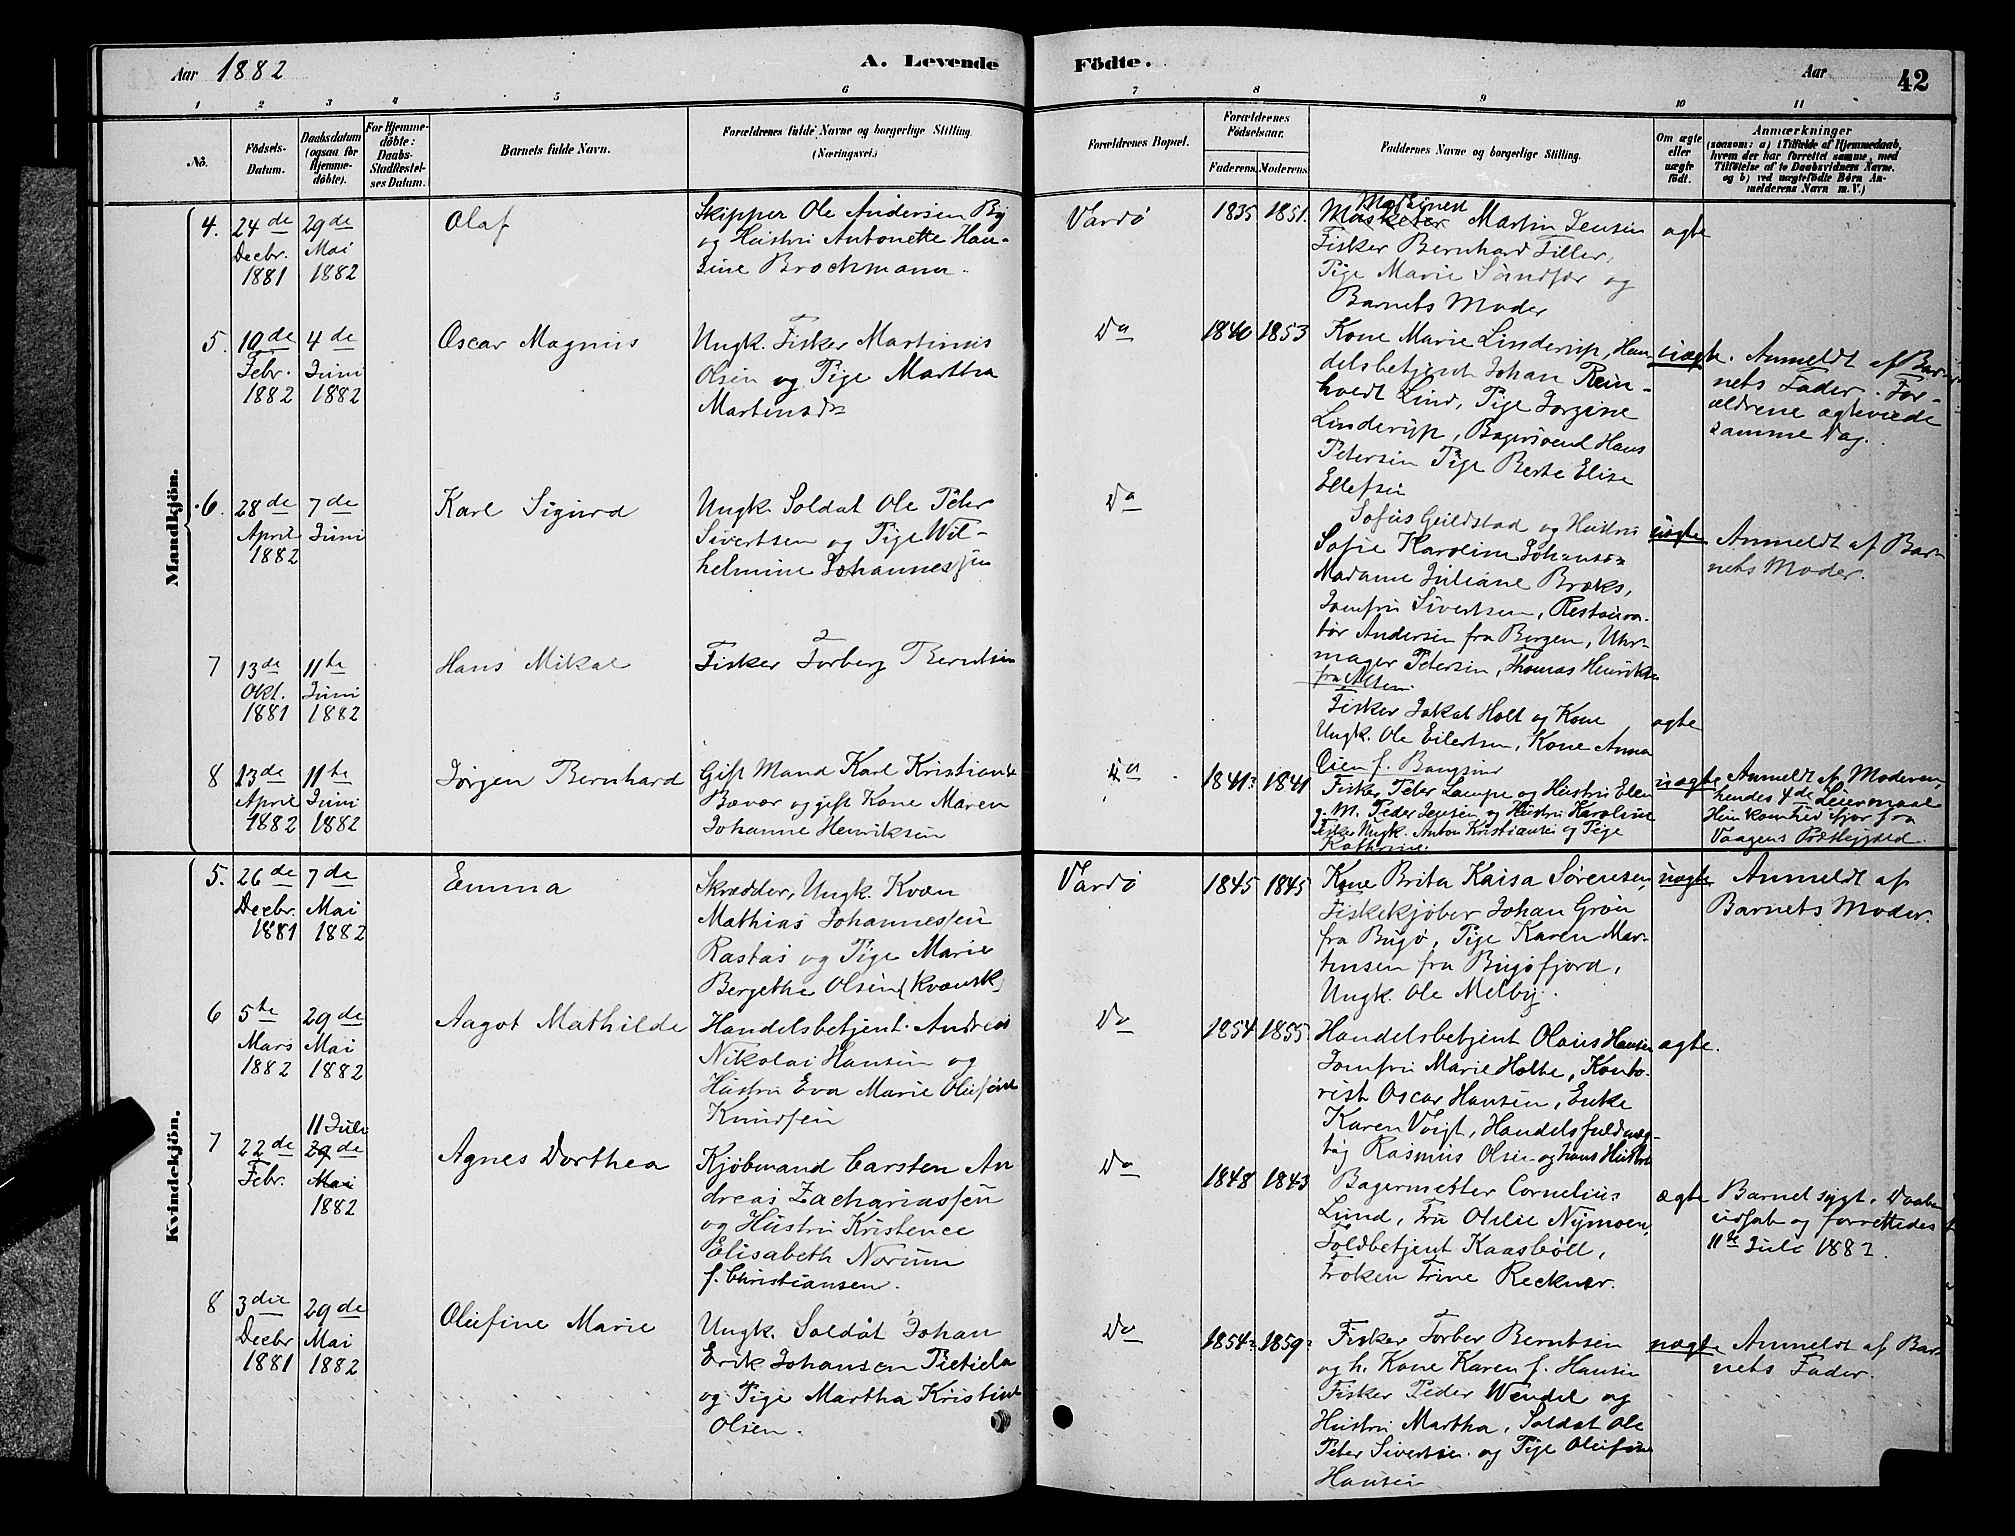 Aar 1882
A. Levende
Födte.
Aar
42
1 2 3 4 5 6 7 8 9 10 11
No.
Födsels-
Datum.
Daabsdatum
(ogsaa for
Hjemme-
döbte).
For Hjemme-
döbte:
Daabs-
Stadfæstel-
ses Datum.
Barnets fulde Navn.
Forældrenes fulde Navne og borgerlige Stilling.
(Næringsvei.)
Forældrenes Bopæl.
Forældrenes
Födselsaar.
Faderens. Moderens.
Faddernes Navne og borgerlige Stilling.
Om ægte
eller
uægte
født.
Anmærkninger
(saasom: a) i Tilfælde af Hjemmedaab,
hvem der har forrettet samme, med
Tilföielse af to Daabsvidners Navne,
og b) ved uægtefödte Börn An-
melderens Navn m. V.)
Mandkjön.
4.
24de
Decbr.
1881
29de
Mai
1882
Olaf
Skipper Ole Andersen By
og Hustru Antonette Han-
sine Brochmann.
Vardö
1835 1851.
Martin Jensen
Fisker Bernhard Tiller,
Pige Marie Sandfær og
Barnets Moder
ægte
5.
19de
Febr.
1882
4de
Juni
1882
Oscar Magnus
Ungk. Fisker Martinus
Olsen og Pige Martha
Martinsdr
Do
1840 1853
Kone Marie Linderup, Han-
delsbetjent Johan Rein-
holdt Lind, Pige Jorgine
Linderup, Bagersvend Hans
Petersen Pige Berte Elise
Ellefsen
uægte.
Anmeldt af Bar-
nets Fader. For-
ældrene ægteviede
samme Dag.
6.
28de
April
1882
7de
Juni
Karl Sigurd
Ungk. Soldat Ole Peter
Sivertsen og Pige Wil-
helmine Johannessen
Do
Sofus Geildstad og Hustru
Sofie Karoline Johansdr
Madame Juliane Bræks,
Jomfru Sivertsen, Restaura-
tör Andersen fra Bergen, Uhr-
mager Petersen, Thomas Henriksen
fra Alten.
uægte
Anmeldt af Bar-
nets Moder.
7
13de
Okt.
1881
11te
Juni
1882
Hans Mikal
Fisker Torberg Berntsen
Fisker Jakob Holt og Kone
Ungk. Ole Eilertsen, Kone Anna
Oien f.
ægte
8
13de
April
1882
11te
Juni
1882
Jörgen Bernhard
Gift Mand Karl Kristians.
Bævær og gift Kone Maren
Johanne Henriksen
Do
1841? 1841
Fisker Peter Lampe og Hustru Elen
g. M. Peder Jensen og Hustru Karoline
Fisker Ungk. Anton Kristiansen og Pige
Kathrine.
uægte
Anmeldt af Moderen,
hendes 4de Leiermaal
Hun kom hid ifjor fra
Vaagens Præstegjeld.
Kvindekjön.
5.
26de
Decbr.
1881
7de
Mai
1882
Emma
Skrædder, Ungk. Kvæn
Mathias Johannessen
Rastas og Pige Marie
Bergethe Olsen (kvænsk)
Vardö
1845 1845
Kone Brita Kaisa Sörensen,
Fiskekjöber Johan Grön
fra Bugö, Pige Karen Mar-
tinsen fra Bugöfjord,
Ungk. Ole Melby.
uægte
Anmeldt af
Barnets Moder.
6
5te
Mars
1882
29de
Mai
1882
Aagot Mathilde
Handelsbetjent Andreas
Nikolai Hansen og
Hustru Eva Marie Olufine
Knudsen
Do
1854 1855.
Handelsbetjent Olaus Hansen
Jomfru Marie Holte, Konto-
rist Oscar Hansen, Enke
Karen Voigt, Handelsfuldmæg-
tig Rasmus Olsen og hans Hustru
ægte.
7
22de
Febr.
11 Juli
29de
Mai
1882
Agnes Dorthea
Kjöbmand Carsten An-
dreas Zachariassen
og Hustru Kristence
Elisabeth Norum
f. Christiansen.
Do
1848 1843
Bagermester Cornelius
Lund, Fru Otilie Nymoen,
Toldbetjent Kaasböll,
Fröken Trine Reckner.
ægte
Barnet sygt. Daaben
udsat og forrettedes
11te Juli 1882.
8
3die
Decbr
1881
29de
Mai
1882
Olufine Marie
Ungk. Soldat Johan
Erik Johansen Pietiela
og Pige Martha Kristine
Olsen.
Do
1854? 1859?
Fisker Torber Berntsen
og h. Kone Karen f. Hansen
Fisker Peder Wendel og
Hustru Martha, Soldat Ole
Peter Sivertsen og Pige Olufine
Hansen
uægte
Anmeldt af Bar-
nets Fader.